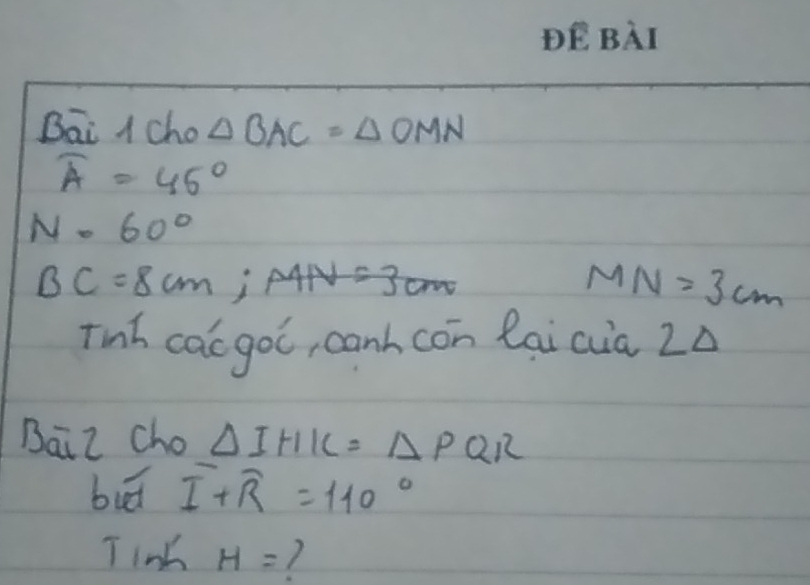 ĐỀ BÀI
Bài 1 Cho Δ BAC = Δ OMN
Â = 45°
N = 60°
BC = 8 cm ; MN = 3 cm MN = 3 cm
Tính các góc, cạnh còn lại của 2 Δ
Bài 2 Cho Δ IHK = Δ PQR
biết Î + R̂ = 110°
Tính H = ?